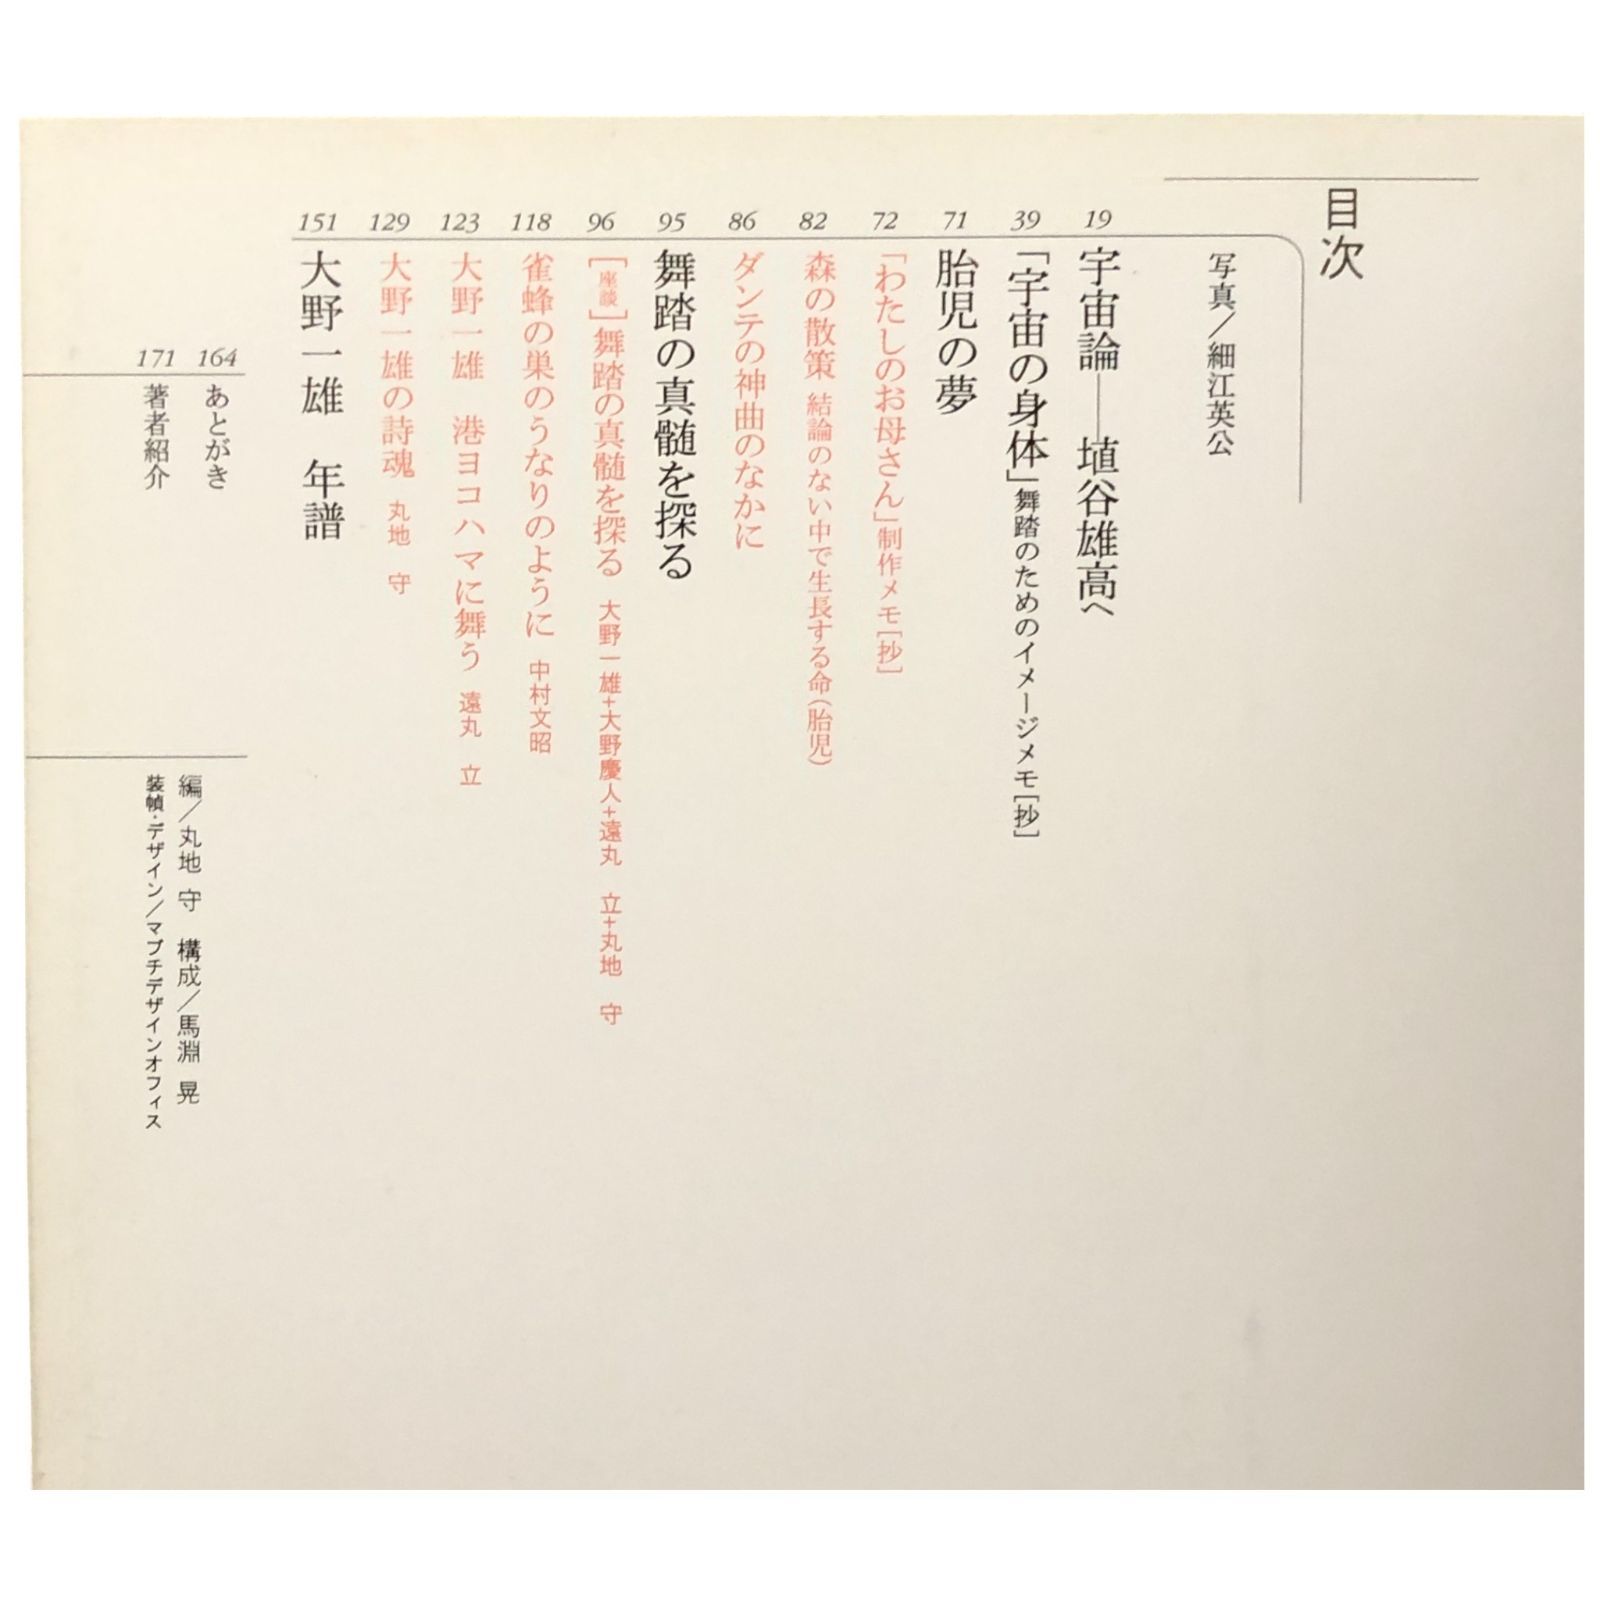 目次
写真／細江英公
19 宇宙論――埴谷雄高へ
39 「宇宙の身体」舞踏のためのイメージメモ[抄]
71 胎児の夢
72 「わたしのお母さん」制作メモ[抄]
82 森の散策 結論のない中で生長する命(胎児)
86 ダンテの神曲のなかに
95 舞踏の真髄を探る
96 [座談]舞踏の真髄を探る 大野一雄+大野慶人+遠丸 立+丸地 守
118 雀蜂の巣のうなりのように 中村文昭
123 大野一雄 港ヨコハマに舞う 遠丸 立
129 大野一雄の詩魂 丸地 守
151 大野一雄 年譜
164 あとがき
171 著者紹介
編／丸地 守 構成／馬淵 晃
装幀・デザイン／マブチデザインオフィス